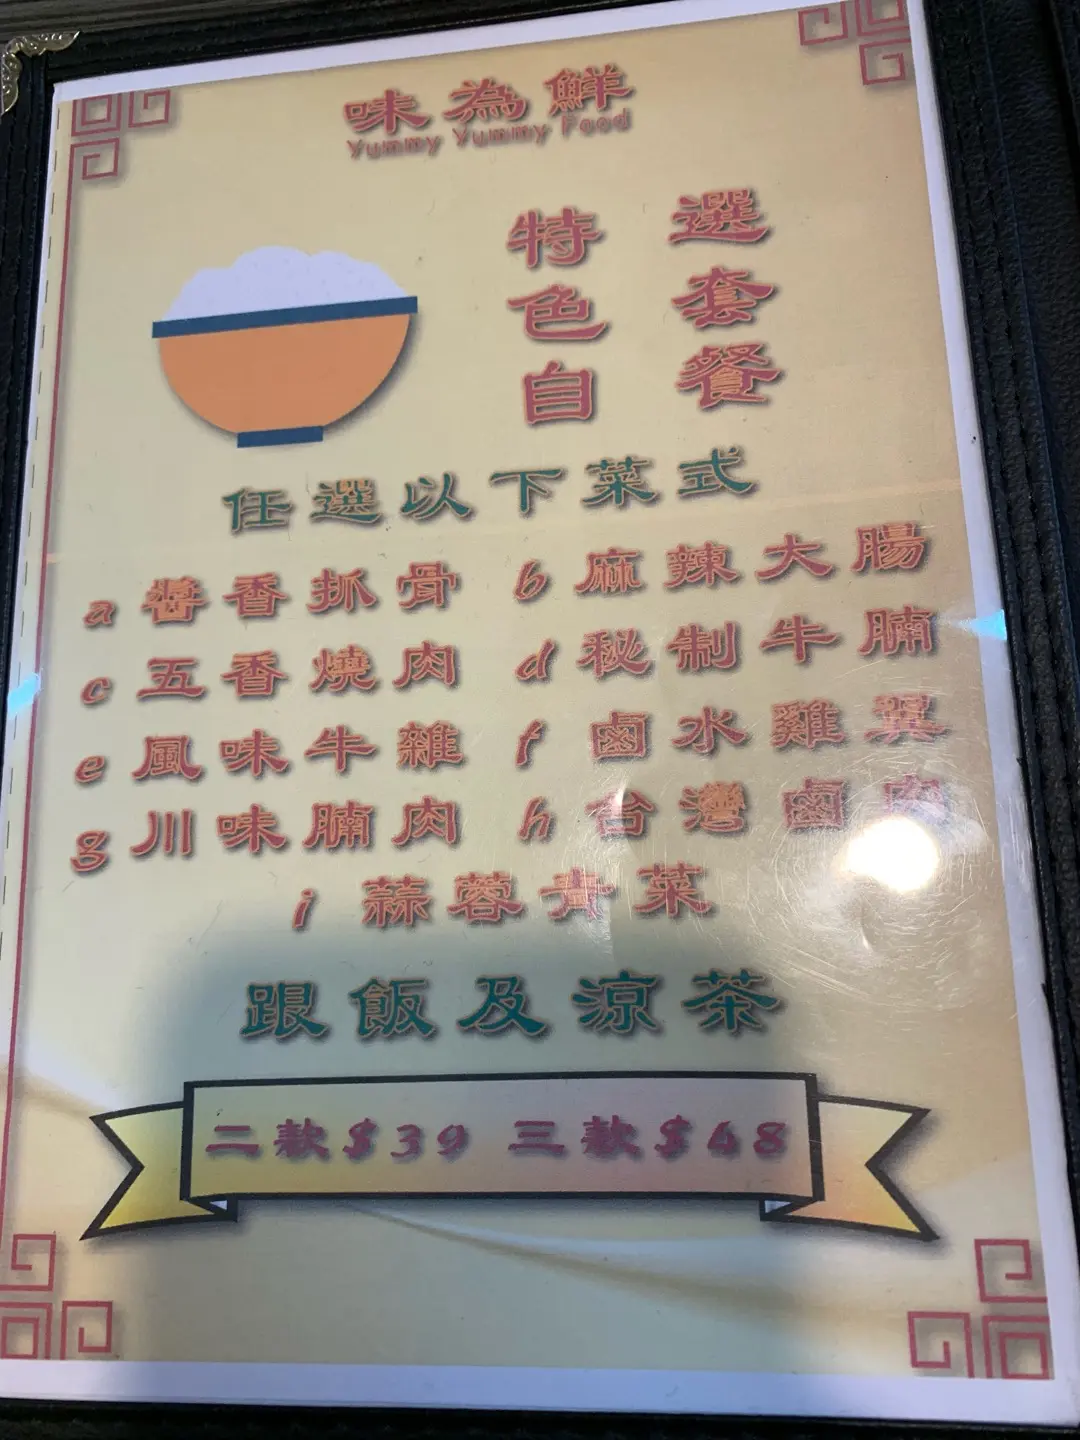 味為鮮
Yummy Yummy Food
特色自
選套餐
任選以下菜式
a 醬香抓骨 b 麻辣大腸
c 五香燒肉 d 秘制牛腩
e 風味牛雜 f 鹵水雞翼
g 川味腩肉 h 台灣鹵肉
i 蒜蓉青菜
跟飯及涼茶
二款$39 三款$48